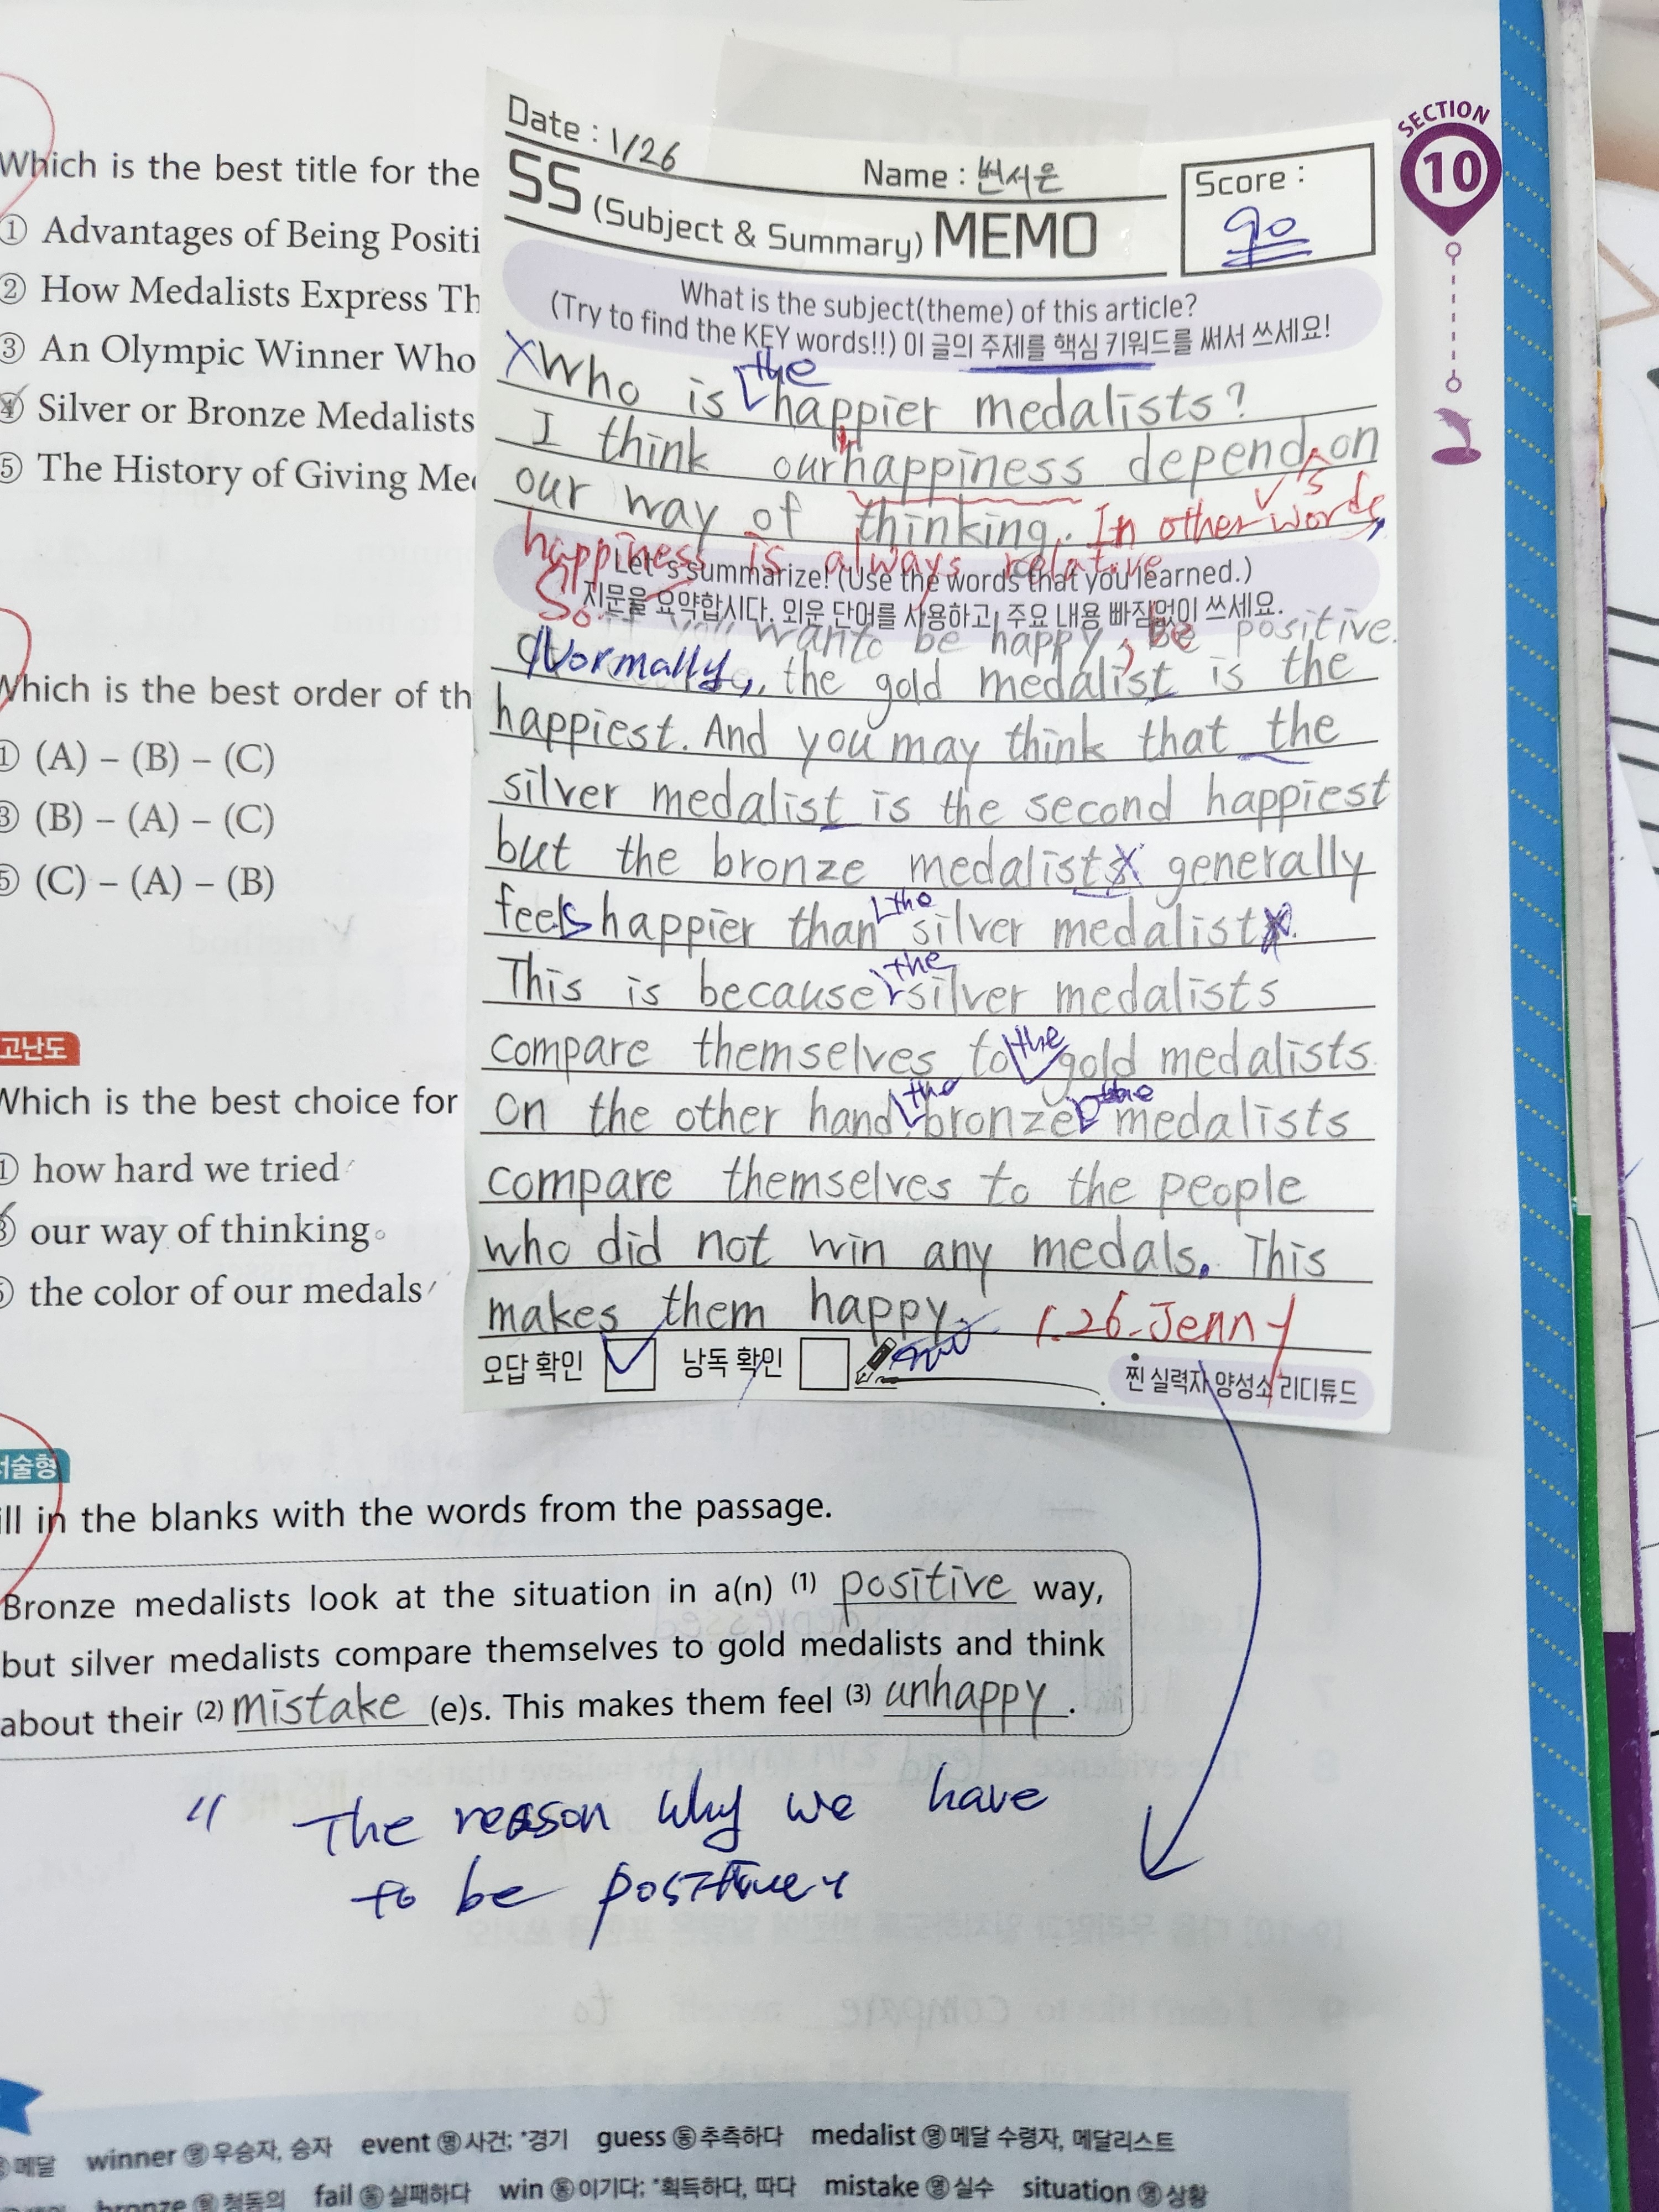 SECTION
10
Which is the best title for the
① Advantages of Being Positi
② How Medalists Express Th
③ An Olympic Winner Who
④ Silver or Bronze Medalists
⑤ The History of Giving Me
Which is the best order of th
① (A) – (B) – (C)
③ (B) – (A) – (C)
⑤ (C) – (A) – (B)
고난도
Which is the best choice for
① how hard we tried
③ our way of thinking
⑤ the color of our medals
Date : 1/26
Name : 변서은
Score :
90
SS (Subject & Summary) MEMO
What is the subject(theme) of this article?
(Try to find the KEY words!!) 이 글의 주제를 핵심 키워드를 써서 쓰세요!
X Who is the happier medalists?
I think our happiness depends on
our way of thinking. In other words,
happiness is always relative
Let's summarize! (Use the words that you learned.)
So 지문을 요약합시다. 외운 단어를 사용하고, 주요 내용 빠짐없이 쓰세요.
you want to be happy, be positive.
Normally, the gold medalist is the
happiest. And you may think that the
silver medalist is the second happiest
but the bronze medalists generally
feels happier than the silver medalist
This is because the silver medalists
compare themselves to the gold medalists.
On the other hand, the bronze medalists
compare themselves to the people
who did not win any medals. This
makes them happy. 1.26. Jenny
오답 확인 낭독 확인
찐 실력자 양성소 리디튜드
서술형
ill in the blanks with the words from the passage.
Bronze medalists look at the situation in a(n) (1) positive way,
but silver medalists compare themselves to gold medalists and think
about their (2) mistake (e)s. This makes them feel (3) unhappy.
" The reason why we have
to be positive "
메달 winner 명 우승자, 승자 event 명 사건; *경기 guess 동 추측하다 medalist 명 메달 수령자, 메달리스트
bronze 형 청동의 fail 동 실패하다 win 동 이기다; *획득하다, 따다 mistake 명 실수 situation 명 상황